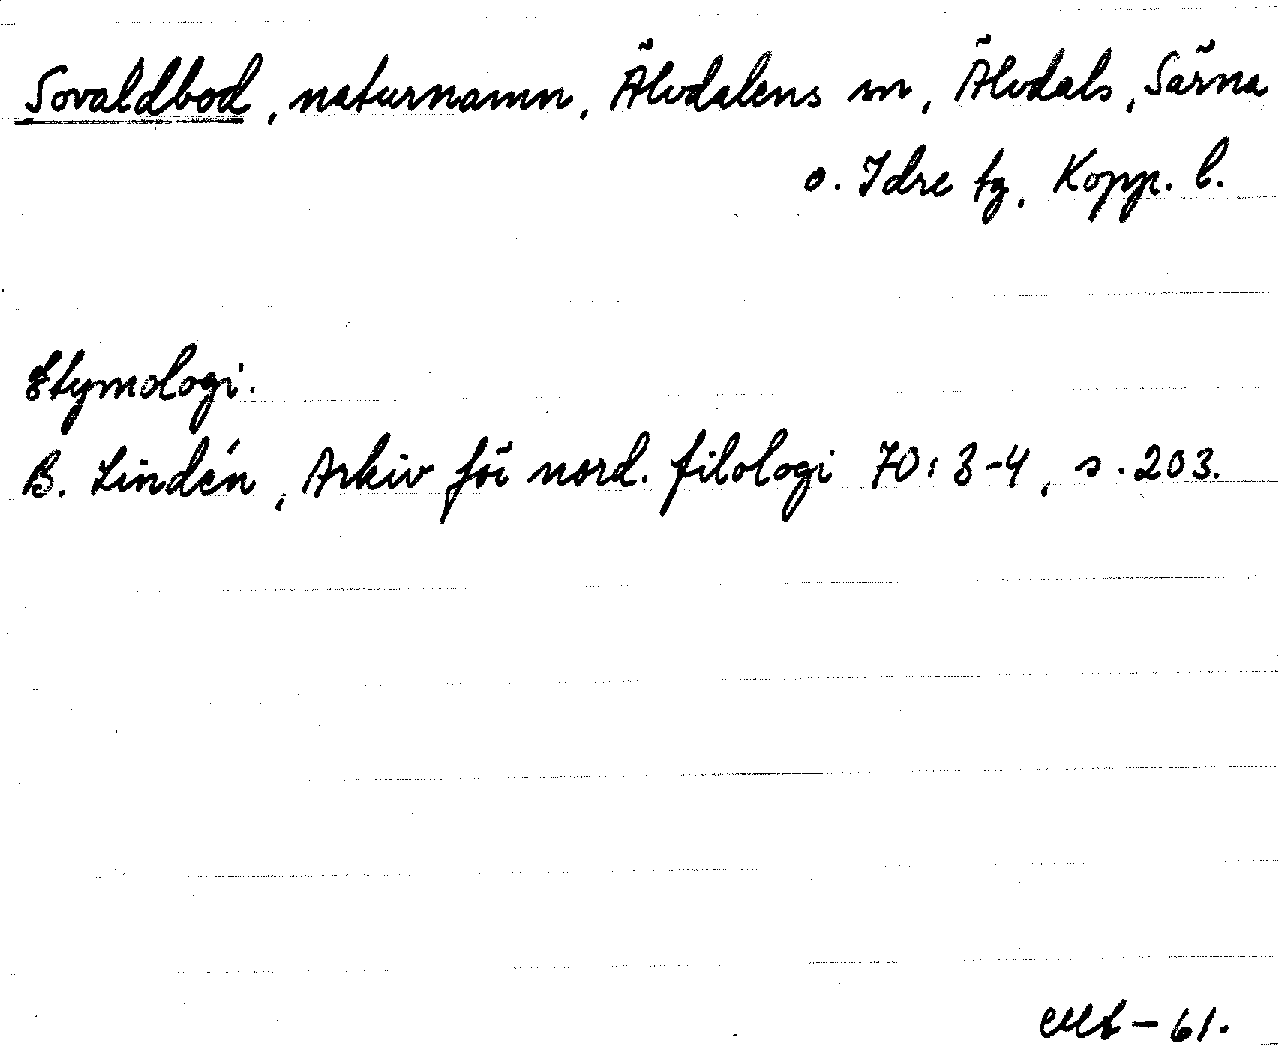 Sovaldbod, naturnamn, Älvdalens sn, Älvdals, Särna
o. Idre tg, Kopp. l.
Etymologi.
B. Lindén, Arkiv för nord. filologi 70:3-4, s. 203.
-61.